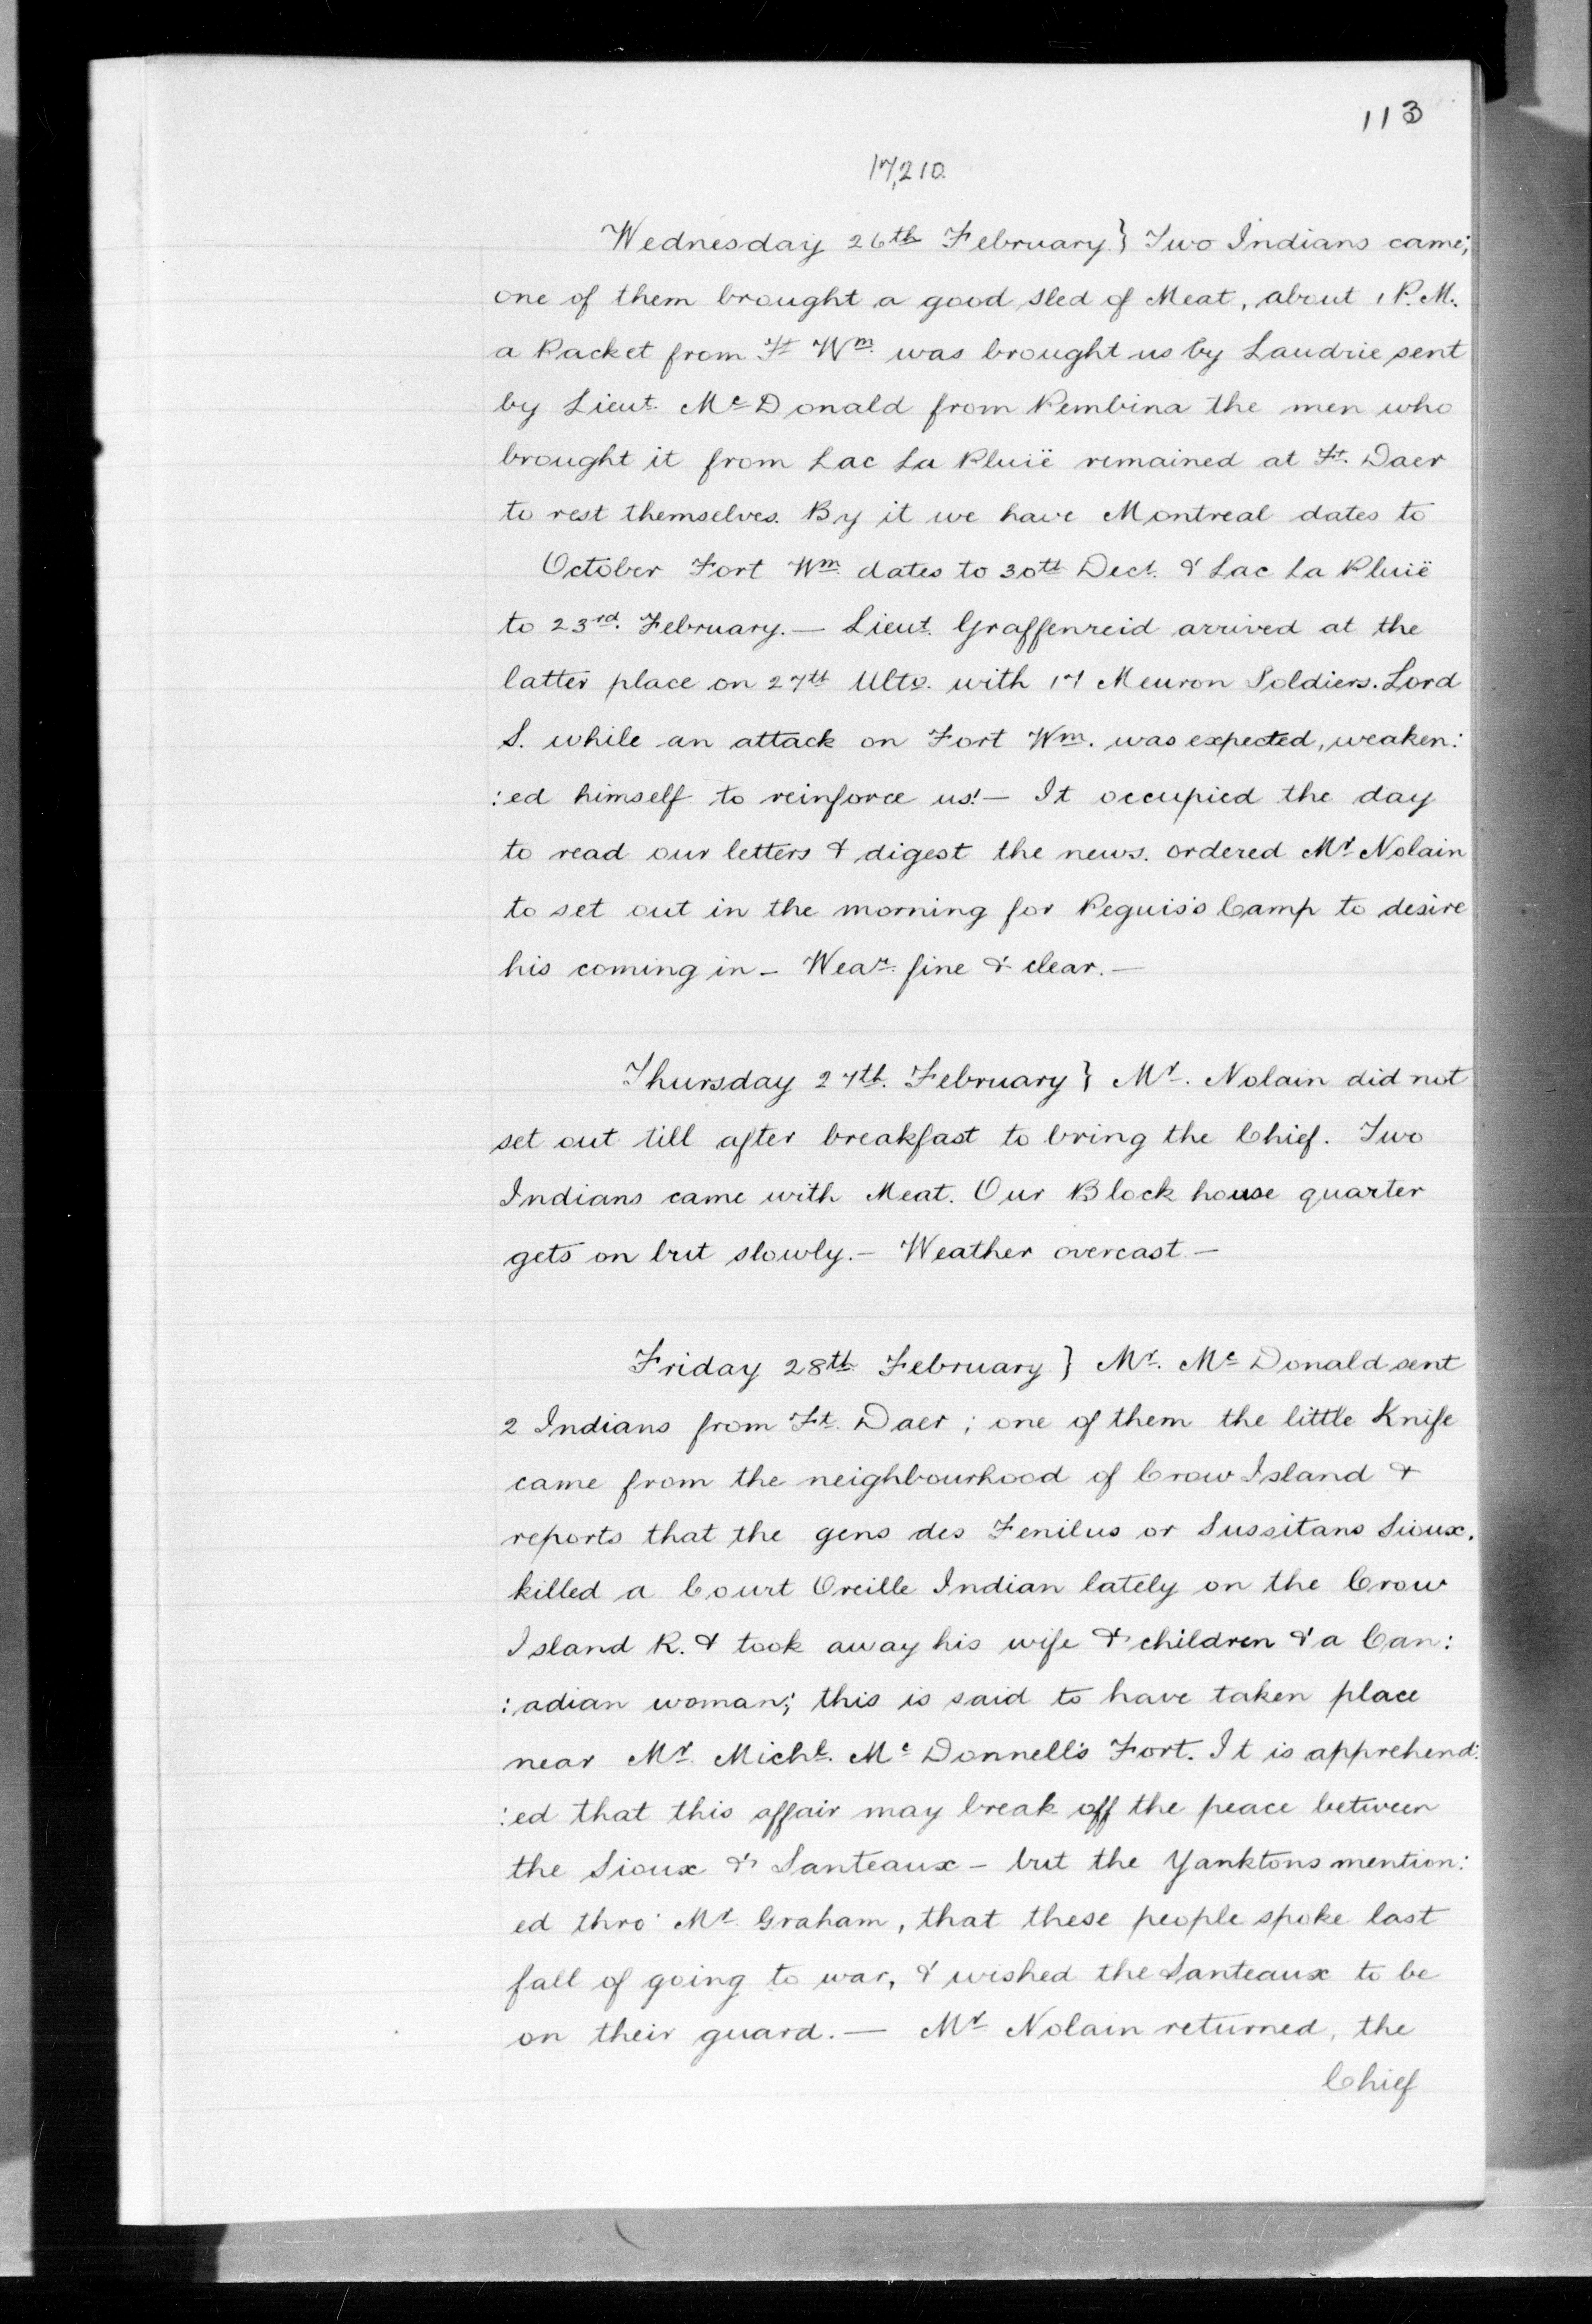 113
17,210.
Wednesday 26th February } Two Indians came;
one of them brought a good sled of Meat, about 1 P.M.
a Packet from Ft Wm. was brought us by Laudrie sent
by Lieut. McDonald from Pembina the men who
brought it from Lac La Pluië remained at Ft. Daer
to rest themselves. By it we have Montreal dates to
October Fort Wm. dates to 30th Decr. & Lac La Pluië
to 23rd. February. — Lieut. Graffenreid arrived at the
latter place on 27th Ulto. with 17 Meuron Soldiers. Lord
S. while an attack on Fort Wm. was expected, weaken:
:ed himself to reinforce us! — It occupied the day
to read our letters & digest the news. ordered Mr. Nolain
to set out in the morning for Peguis's Camp to desire
his coming in — Wear. fine & clear. —
Thursday 27th. February } Mr. Nolain did not
set out till after breakfast to bring the Chief. Two
Indians came with Meat. Our Block house quarter
gets on but slowly. — Weather overcast. —
Friday 28th February } Mr. Mc Donald sent
2 Indians from Ft. Daer; one of them the little Knife
came from the neighbourhood of Crow Island &
reports that the gens des Fenilus or Sussitans Sioux.
killed a Court Oreille Indian lately on the Crow
Island R. & took away his wife & children & a Can:
:adian woman; this is said to have taken place
near Mr. Michl. Mc Donnell's Fort. It is apprehend:
:ed that this affair may break off the peace between
the Sioux & Santeaux — but the Yanktons mention:
ed thro' Mr. Graham, that these people spoke last
fall of going to war, & wished the Santeaux to be
on their guard. — Mr. Nolain returned, the
Chief